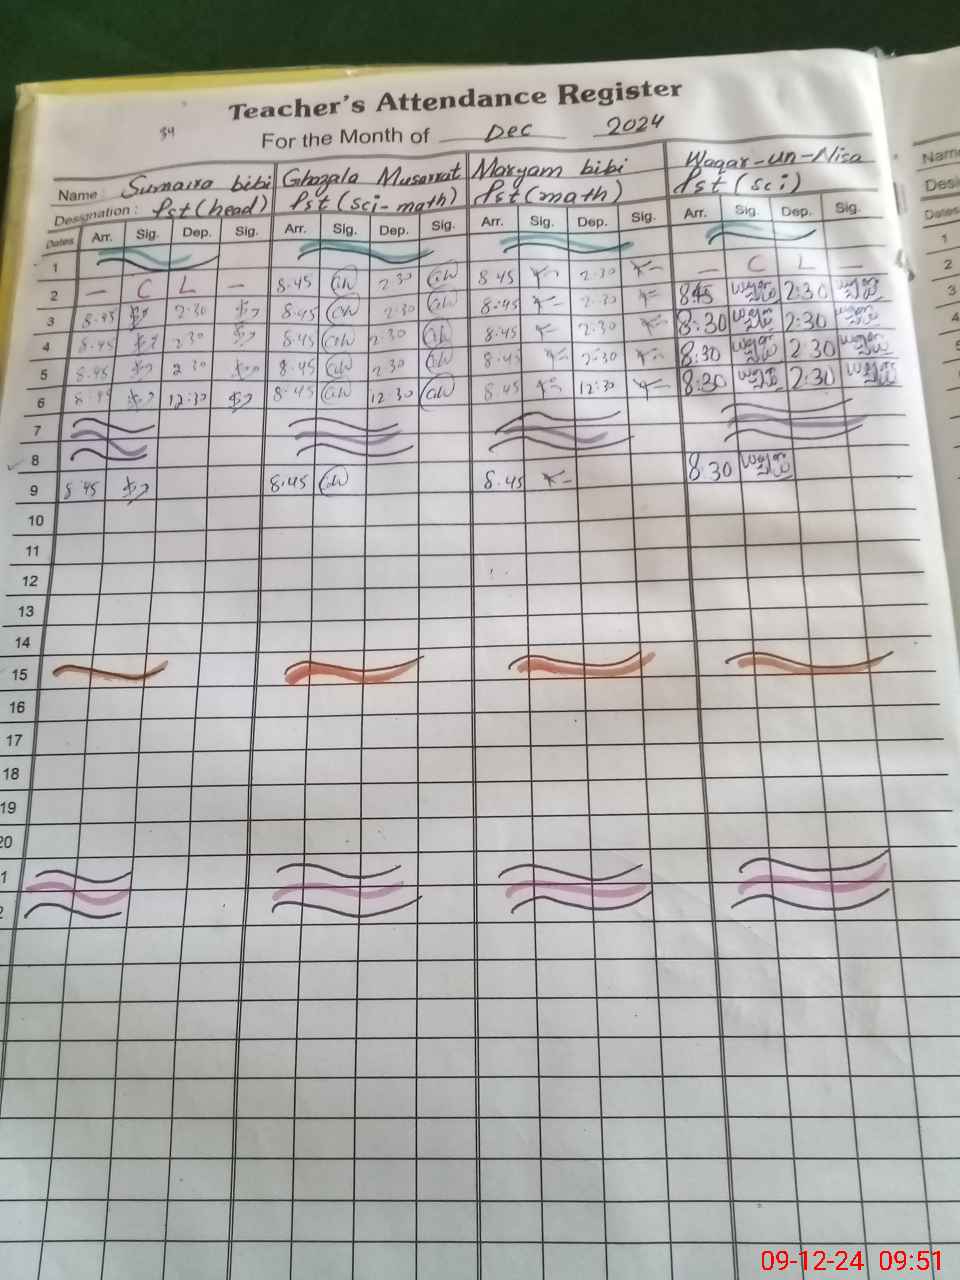 Teacher's Attendance Register
34
For the Month of Dec 2024
Name : Sumaira bibi Ghazala Musarrat Maryam bibi Waqar-un-Nisa
Designation : Pst (head) Pst (sci-math) Pst (math) Pst (sci)
Dates Arr. Sig. Dep. Sig. Arr. Sig. Dep. Sig. Arr. Sig. Dep. Sig. Arr. Sig. Dep. Sig.
1
2 — C L — 8.45 2.30 8.45 2.30 — C L —
3 8.45 2.30 8.45 2.30 8.45 2.30 8:45 2:30
4 8.45 2.30 8.45 2.30 8.45 2:30 8:30 2:30
5 8.45 2.30 8.45 2.30 8.45 2:30 8:30 2:30
6 8.45 12:30 8.45 12.30 8.45 12:30 8:30 2:30
7
8
9 8.45 8.45 8.45 8:30
10
11
12
13
14
15
16
17
18
19
20
1
2
Name
Desi
Dates
1
2
3
4
5
6
09-12-24 09:51